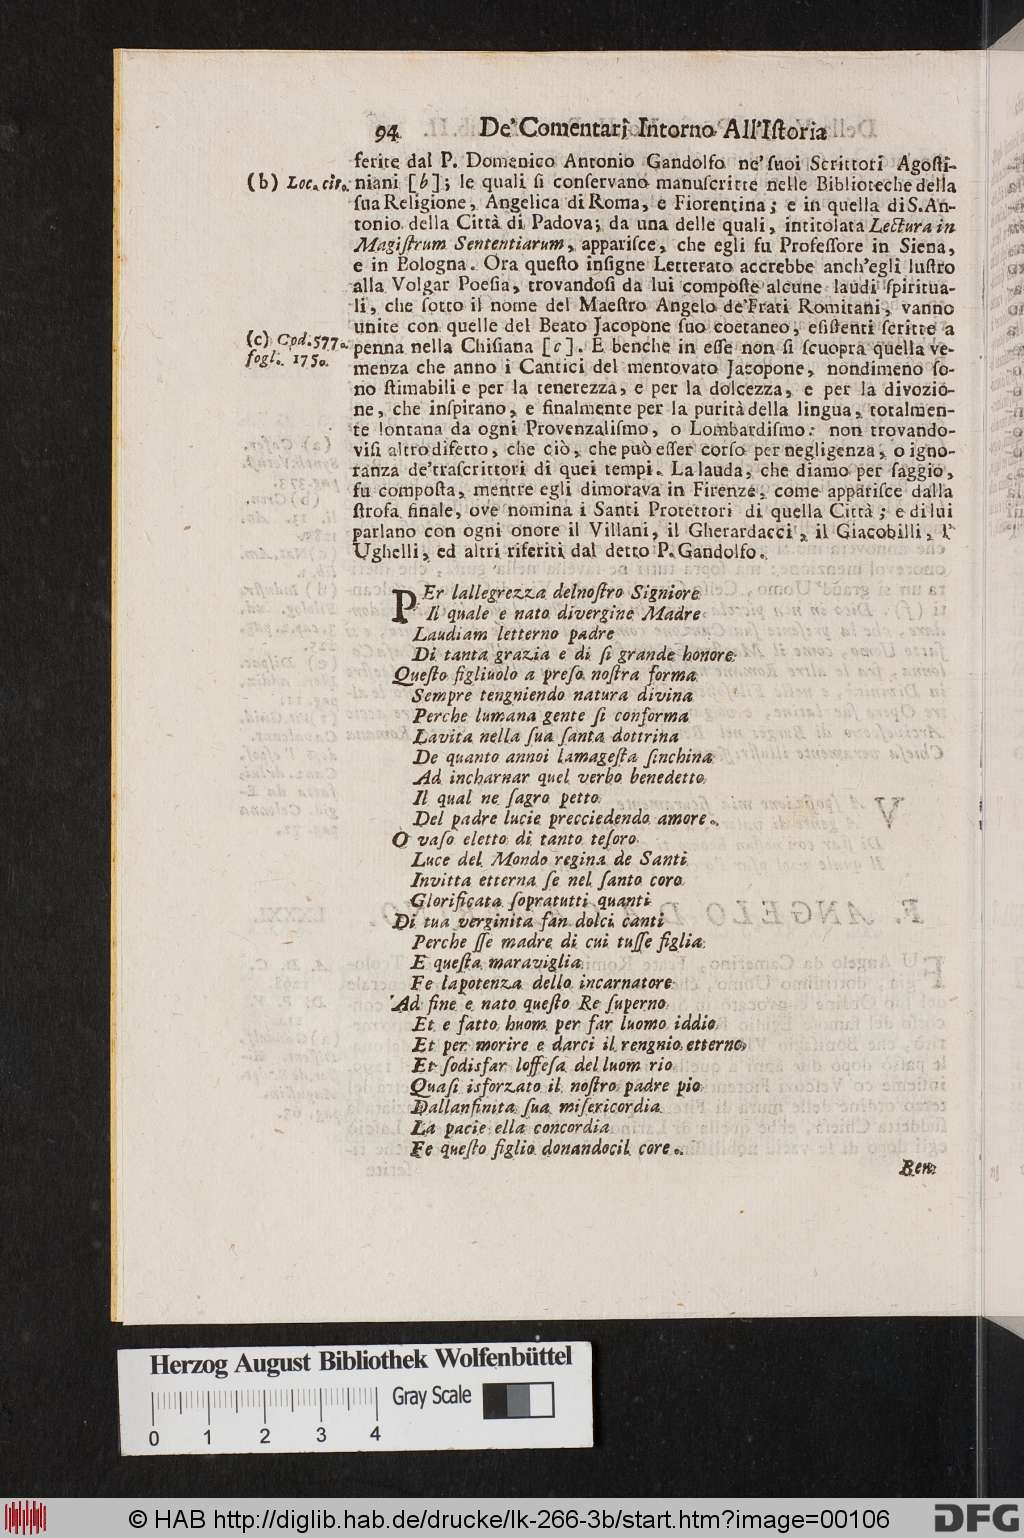 94 De' Comentarî Intorno All'Iſtoria
ferite dal P. Domenico Antonio Gandolfo ne' ſuoi Scrittori Agoſti-
(b) Loc. cit.
niani [b]; le quali ſi conſervano manuſcritte nelle Biblioteche della
ſua Religione, Angelica di Roma, e Fiorentina; e in quella di S. An-
tonio della Città di Padova; da una delle quali, intitolata Lectura in
Magiſtrum Sententiarum, appariſce, che egli fu Profeſſore in Siena,
e in Bologna. Ora queſto inſigne Letterato accrebbe anch'egli luſtro
alla Volgar Poeſia, trovandoſi da lui compoſte alcune laudi ſpiritua-
li, che ſotto il nome del Maeſtro Angelo de' Frati Romitani, vanno
unite con quelle del Beato Jacopone ſuo coetaneo, eſiſtenti ſcritte a
(c) Cod. 577.
fogl. 1750.
penna nella Chiſiana [c]. E benche in eſſe non ſi ſcuopra quella ve-
menza che anno i Cantici del mentovato Jacopone, nondimeno ſo-
no ſtimabili e per la tenerezza, e per la dolcezza, e per la divozio-
ne, che inſpirano, e finalmente per la purità della lingua, totalmen-
te lontana da ogni Provenzaliſmo, o Lombardiſmo: non trovando-
viſi altro difetto, che ciò, che può eſſer corſo per negligenza, o igno-
ranza de' traſcrittori di quei tempi. La lauda, che diamo per ſaggio,
fu compoſta, mentre egli dimorava in Firenze, come appariſce dalla
ſtrofa finale, ove nomina i Santi Protettori di quella Città; e di lui
parlano con ogni onore il Villani, il Gherardacci, il Giacobilli, l'
Ughelli, ed altri riferiti dal detto P. Gandolfo.
PEr lallegrezza delnoſtro Signiore
Il quale e nato divergine Madre
Laudiam letterno padre
Di tanta grazia e di ſi grande honore
Queſto figliuolo a preſo noſtra forma
Sempre tengniendo natura divina
Perche lumana gente ſi conforma
Lavita nella ſua ſanta dottrina
De quanto annoi lamageſta ſinchina
Ad incharnar quel verbo benedetto
Il qual ne ſagro petto
Del padre lucie precciedendo amore.
O vaſo eletto di tanto teſoro
Luce del Mondo regina de Santi
Invitta etterna ſe nel ſanto coro
Glorificata ſopratutti quanti
Di tua verginita fan dolci canti
Perche ſſe madre di cui tuſſe figlia
E queſta maraviglia
Fe lapotenza dello incarnatore
Ad fine e nato queſto Re ſuperno
Et e fatto huom per far luomo iddio
Et per morire e darci il rengnio etterno
Et ſodisfar loffeſa del luom rio
Quaſi isforzato il noſtro padre pio
Dallanfinita ſua miſericordia
La pacie ella concordia
Fe queſto figlio donandocil core.
Ben
Herzog August Bibliothek Wolfenbüttel
Gray Scale
0 1 2 3 4
© HAB http://diglib.hab.de/drucke/lk-266-3b/start.htm?image=00106
DFG